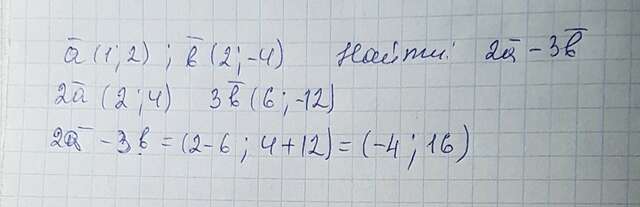 ā (1; 2) ; b̄ (2; -4) Найти: 2ā - 3b̄
2ā (2; 4) 3b̄ (6; -12)
2ā - 3b = (2-6; 4+12) = (-4; 16)